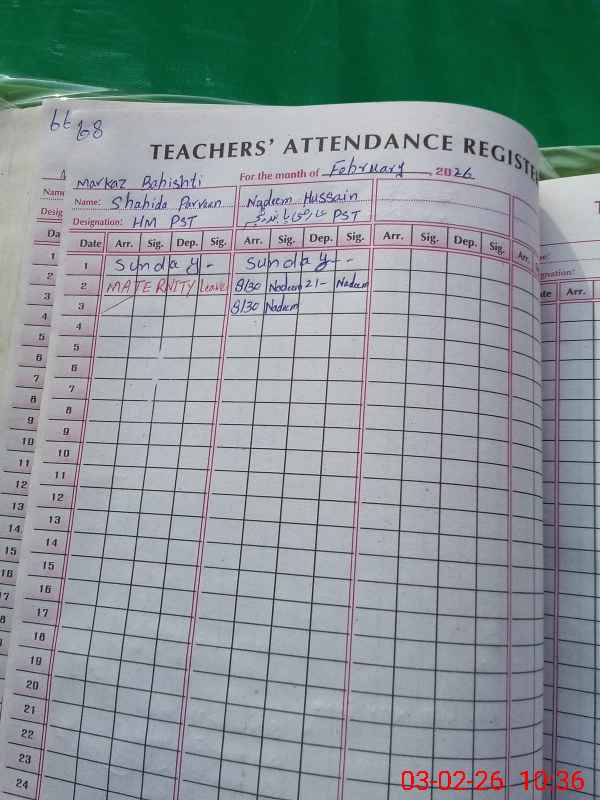 66 68
TEACHERS' ATTENDANCE REGISTE
Markaz Bahishti For the month of February, 2026
Name: Shahida Parveen Nadeem Hussain
Designation: HM PST PST
Date Arr. Sig. Dep. Sig. Arr. Sig. Dep. Sig. Arr. Sig. Dep. Sig. Arr.
1 Sunday - Sunday -
2 MATERNITY Leave 8/30 Nadeem 21- Nadeem
3 8/30 Nadeem
4
5
6
7
8
9
10
11
12
13
14
15
16
17
18
19
20
21
22
23
24
03-02-26 10:36